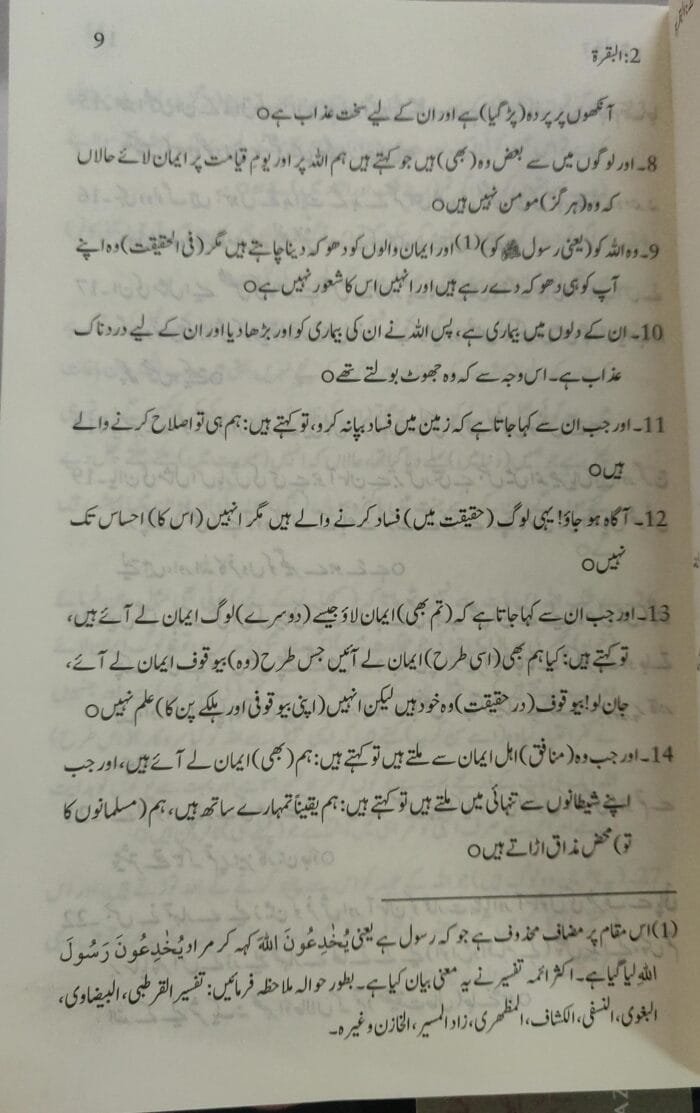 2:البقرۃ
9
آنکھوں پر پردہ (پڑ گیا) ہے اور ان کے لیے سخت عذاب ہے○
8۔ اور لوگوں میں سے بعض وہ (بھی) ہیں جو کہتے ہیں ہم اللہ پر اور یوم قیامت پر ایمان لائے حالاں
کہ وہ (ہرگز) مومن نہیں ہیں○
9۔ وہ اللہ کو (یعنی رسول ﷺ کو)(1) اور ایمان والوں کو دھوکہ دینا چاہتے ہیں مگر (فی الحقیقت) وہ اپنے
آپ کو ہی دھوکہ دے رہے ہیں اور انہیں اس کا شعور نہیں ہے○
10۔ ان کے دلوں میں بیماری ہے، پس اللہ نے ان کی بیماری کو اور بڑھا دیا اور ان کے لیے دردناک
عذاب ہے۔ اس وجہ سے کہ وہ جھوٹ بولتے تھے○
11۔ اور جب ان سے کہا جاتا ہے کہ زمین میں فساد بپا نہ کرو، تو کہتے ہیں: ہم ہی تو اصلاح کرنے والے
ہیں○
12۔ آگاہ ہو جاؤ! یہی لوگ (حقیقت میں) فساد کرنے والے ہیں مگر انہیں (اس کا) احساس تک
نہیں○
13۔ اور جب ان سے کہا جاتا ہے کہ (تم بھی) ایمان لاؤ جیسے (دوسرے) لوگ ایمان لے آئے ہیں،
تو کہتے ہیں: کیا ہم بھی (اسی طرح) ایمان لے آئیں جس طرح (وہ) بیوقوف ایمان لے آئے،
جان لو! بیوقوف (درحقیقت) وہ خود ہیں لیکن انہیں (اپنی بیوقوفی اور ہلکے پن کا) علم نہیں○
14۔ اور جب وہ (منافق) اہل ایمان سے ملتے ہیں تو کہتے ہیں: ہم (بھی) ایمان لے آئے ہیں، اور جب
اپنے شیطانوں سے تنہائی میں ملتے ہیں تو کہتے ہیں: ہم یقیناً تمہارے ساتھ ہیں، ہم (مسلمانوں کا
تو) محض مذاق اڑاتے ہیں○
(1) اس مقام پر مضاف محذوف ہے جو کہ رسول ہے یعنی یُخٰدِعُونَ اللہَ کہہ کر مراد یُخٰدِعُونَ رَسُولَ
اللہِ لیا گیا ہے۔ اکثر ائمہ تفسیر نے یہ معنی بیان کیا ہے۔ بطور حوالہ ملاحظہ فرمائیں: تفسیر القرطبی، البیضاوی،
البغوی، النسفی، الکشاف، المظھری، زاد المسیر، الخازن وغیرہ۔